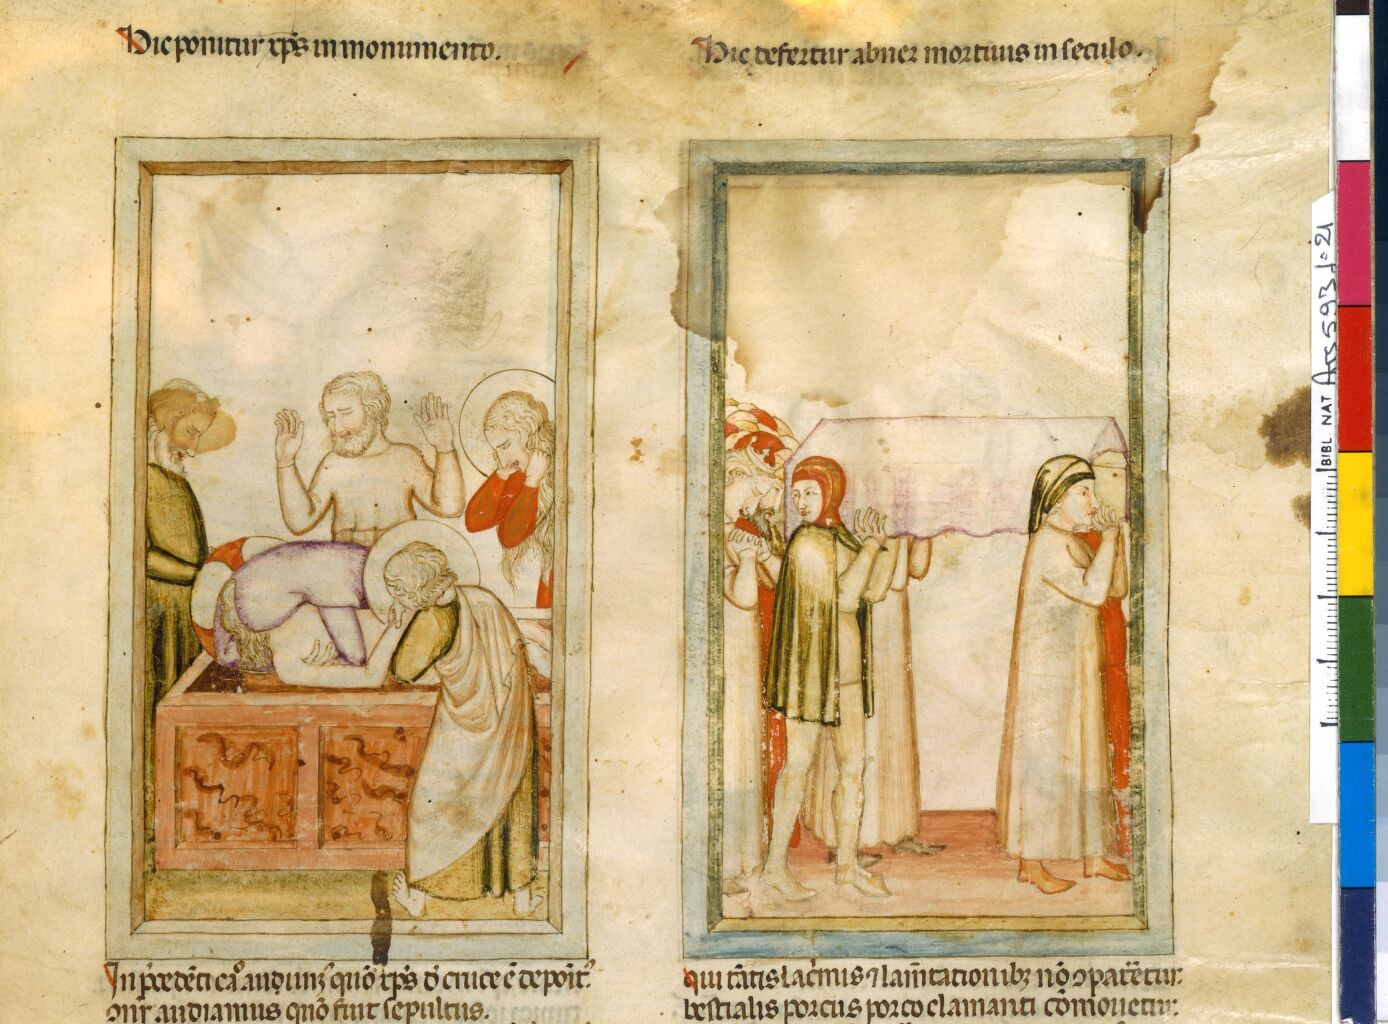 Hic ponitur xp̄s in monumento.
Hic defertur abner mortuus in seculo.
In p̄cedēti ca° audiuiꝰ quō xp̄s d̄ cruce ē deposit̄ꝰ.
audiamus quō fuit sepultus.
qui tātis lac̄mis ⁊ lamētationibꝫ nō ꝯpatēetur.
bestialis porcus porco clamanti cōmouetur.
BIBL NAT Ars 593 f° 21